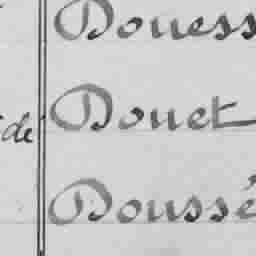 Douess
de Douet
Doussé